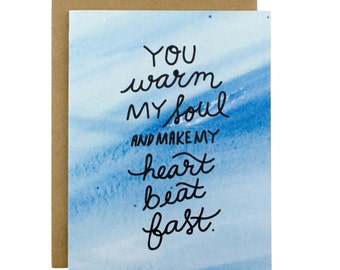 YOU
warm
MY soul
AND MAKE MY
heart
beat
fast.